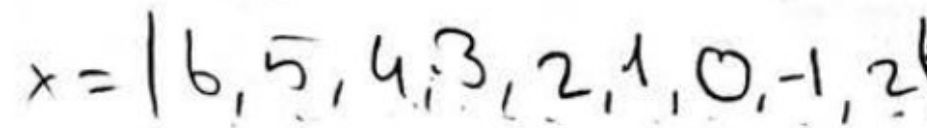 x = | 6, 5, 4, 3, 2, 1, 0, -1, 2